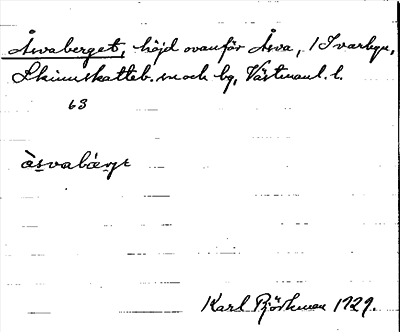 Åsvaberget, höjd ovanför Åsva, i Svarbyn,
Skinnskatteb. sn och bg, Västmanl. l.
63
àsvabárgt
Karl Björkman 1929.